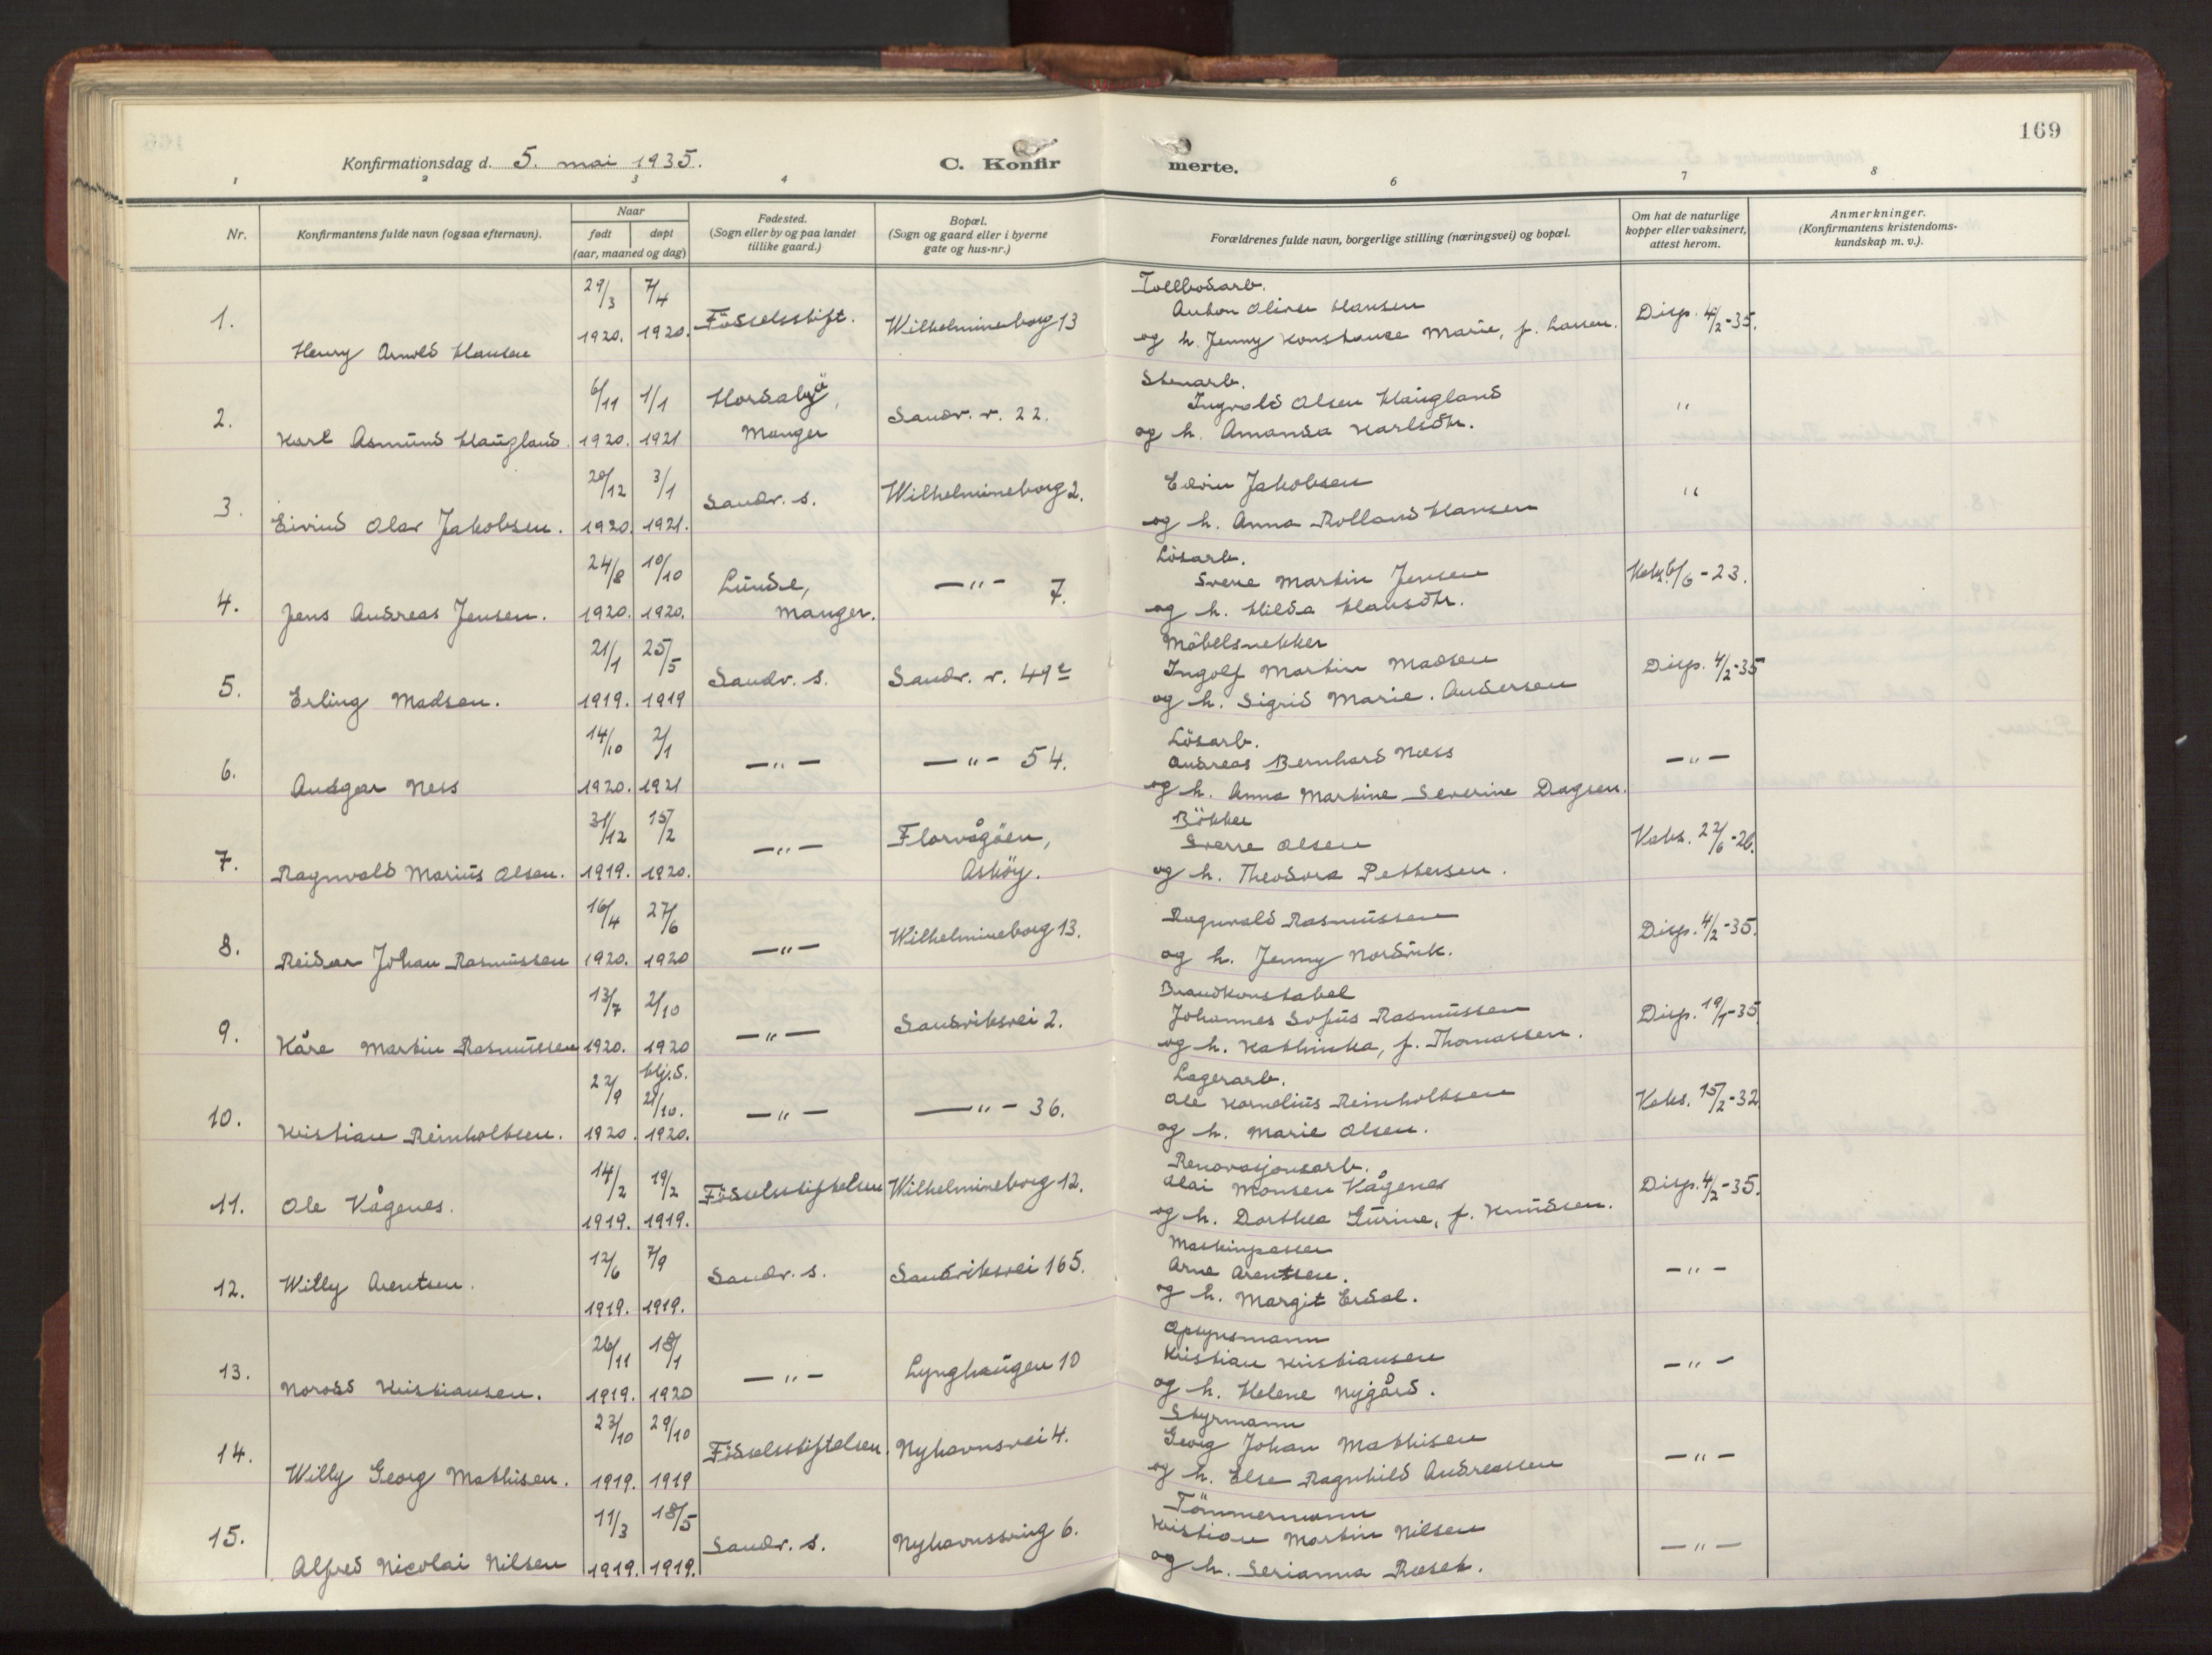 169
Konfirmationsdag d. 5. mai 1935.
C. Konfirmerte.
1 2 3 4 6 7 8
Nr.
Konfirmantens fulde navn (ogsaa efternavn).
Naar
født døpt
(aar, maaned og dag)
Fødested.
(Sogn eller by og paa landet
tillike gaard.)
Bopæl.
(Sogn og gaard eller i byerne
gate og hus-nr.)
Forældrenes fulde navn, borgerlige stilling (næringsvei) og bopæl.
Om hat de naturlige
kopper eller vaksinert,
attest herom.
Anmerkninger.
(Konfirmantens kristendoms-
kundskap m. v.).
1. Henry Arnold Hansen 29/3 1920. 7/4 1920. Födselsstift. Wilhelmineborg 13
Tollbodarb.
Anton Oliver Hansen
og h. Jenny Konstanse Marie, f. Larsen. Disp. 4/2-35.
2. Karl Asmund Haugland. 6/11 1920. 1/1 1921
Manger
Sandv. v. 22.
Stenarb.
Ingvald Olsen Haugland
og h. Amanda Karlsdtr. "
3. Eivind Olav Jakobsen. 20/12 1920. 3/1 1921. Sandv. s. Wilhelmineborg 2.
Edvin Jakobsen
og h. Anna Rolland Hansen "
4. Jens Andreas Jensen. 24/8 1920. 10/10 1920.
Lunde,
Manger.
—"— 7.
Lösarb.
Sverre Martin Jensen
og h. Hilda Hansdtr. 6/6-23.
5. Erling Madsen. 21/1 1919. 25/5 1919 Sandv. s. Sandv. v. 49c
Möbelsnekker
Ingolf Martin Madsen
og h. Sigrid Marie. Andersen Disp. 4/2-35
6. Ansgar Ness 14/10 1920. 2/1 1921 —"— —"— 54.
Lösarb.
Andreas Bernhard Næss
og h. Anna Martine Severine Dagsen. —"—
7. Ragnvald Marius Olsen. 31/12 1919. 15/2 1920. —"—
Florvågöen,
Asköy.
Bökker
Sverre Olsen
og h. Theodora Pettersen. Vaks. 22/6-26.
8. Reidar Johan Rasmussen 16/4 1920. 27/6 1920 —"— Wilhelmineborg 13.
Ragnvald Rasmussen
og h. Jenny Nordvik. Disp. 4/2-35.
9. Kåre Martin Rasmussen 13/7 1920. 2/10 1920 —"— Sandviksvei 2.
Brandkonstabel
Johannes Sofus Rasmussen
og h. Kathinka, f. Thomassen. Disp. 19/1-35.
10. Kristian Reinholtsen. 22/9 1920. hj.d. 21/10. 1920. —"— —"— 36.
Lagerarb.
Ole Kornelius Reinholtsen
og h. Marie Olsen. Vaks. 15/2-32
11. Ole Vågenes. 14/2 1919. 19/2 1919. Födselsstiftelsen Wilhelmineborg 12.
Renovasjonsarb.
Olai Monsen Vågenes
og h. Dorthea Gurine, f. Knudsen. Disp. 4/2-35.
12. Willy Arentsen. 12/6 1919. 7/9 1919. Sandv. s. Sandviksvei 165.
Maskinpasser
Arne Arentsen.
og h. Margit Erdal. —"—
13. Norodd Kristiansen. 26/11 1919. 18/1 1920 —"— Lynghaugen 10
Opsynsmann
Kristian Kristiansen
og h. Helene Nygård. —"—
14. Willy Georg Mathisen. 23/10 1919. 29/10 1919 Födselsstiftelsen. Nyhavnsvei 4.
Styrmann
Georg Johan Mathisen
og h. Else Ragnhild Andreassen —"—
15. Alfred Nicolai Nilsen 11/3 1919. 18/5 1919. Sandv. s. Nyhavnssving 6.
Tömmermann
Kristian Martin Nilsen
og h. Serianna Roset. —"—